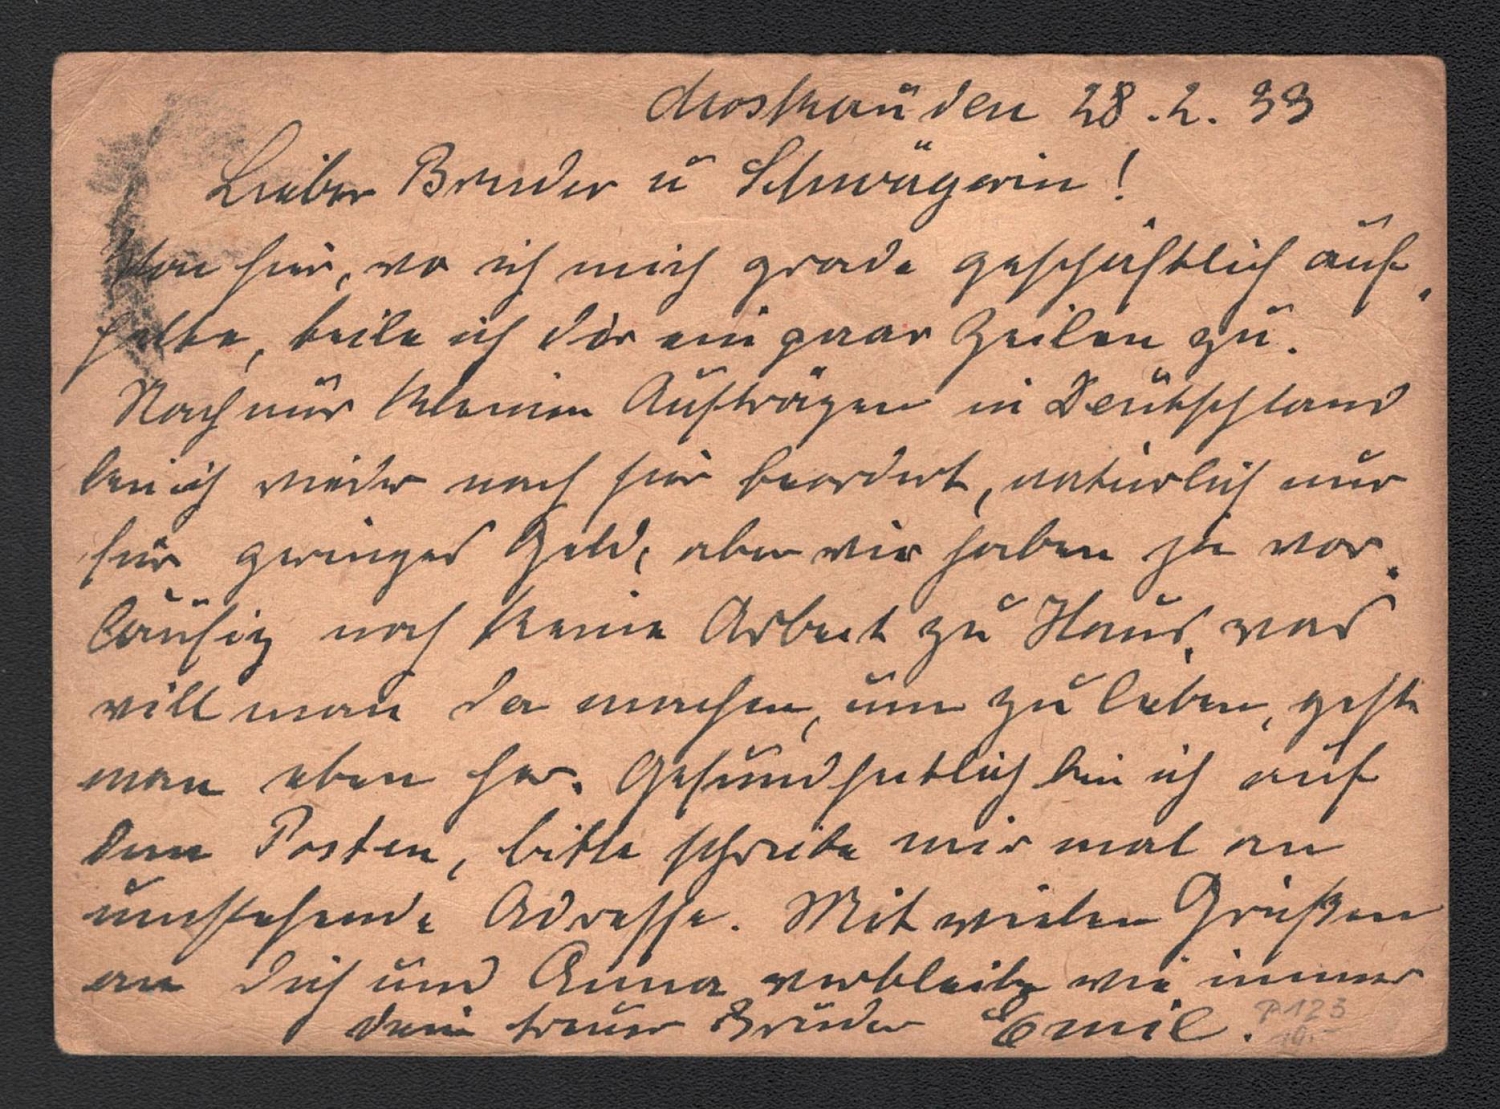 Moskau den 28.2.33
Lieber Bruder u Schwägerin!
Von hier, wo ich mich grade geschäftlich auf-
halte, teile ich dir ein paar Zeilen zu.
Nach nur kleinen Aufträgen in Deutschland
bin ich wieder nach hier beordert, natürlich nur
für geringes Geld, aber wir haben ja vor-
läufig noch keine Arbeit zu Haus, was
will man da machen, um zu leben, geht
man eben her. Gesundheitlich bin ich auf
dem Posten, bitte schreibe mir mal an
umstehende Adresse. Mit vielen Grüßen
an dich und Anna verbleibe wie immer
dein treuer Bruder Emil.
P123
10.-